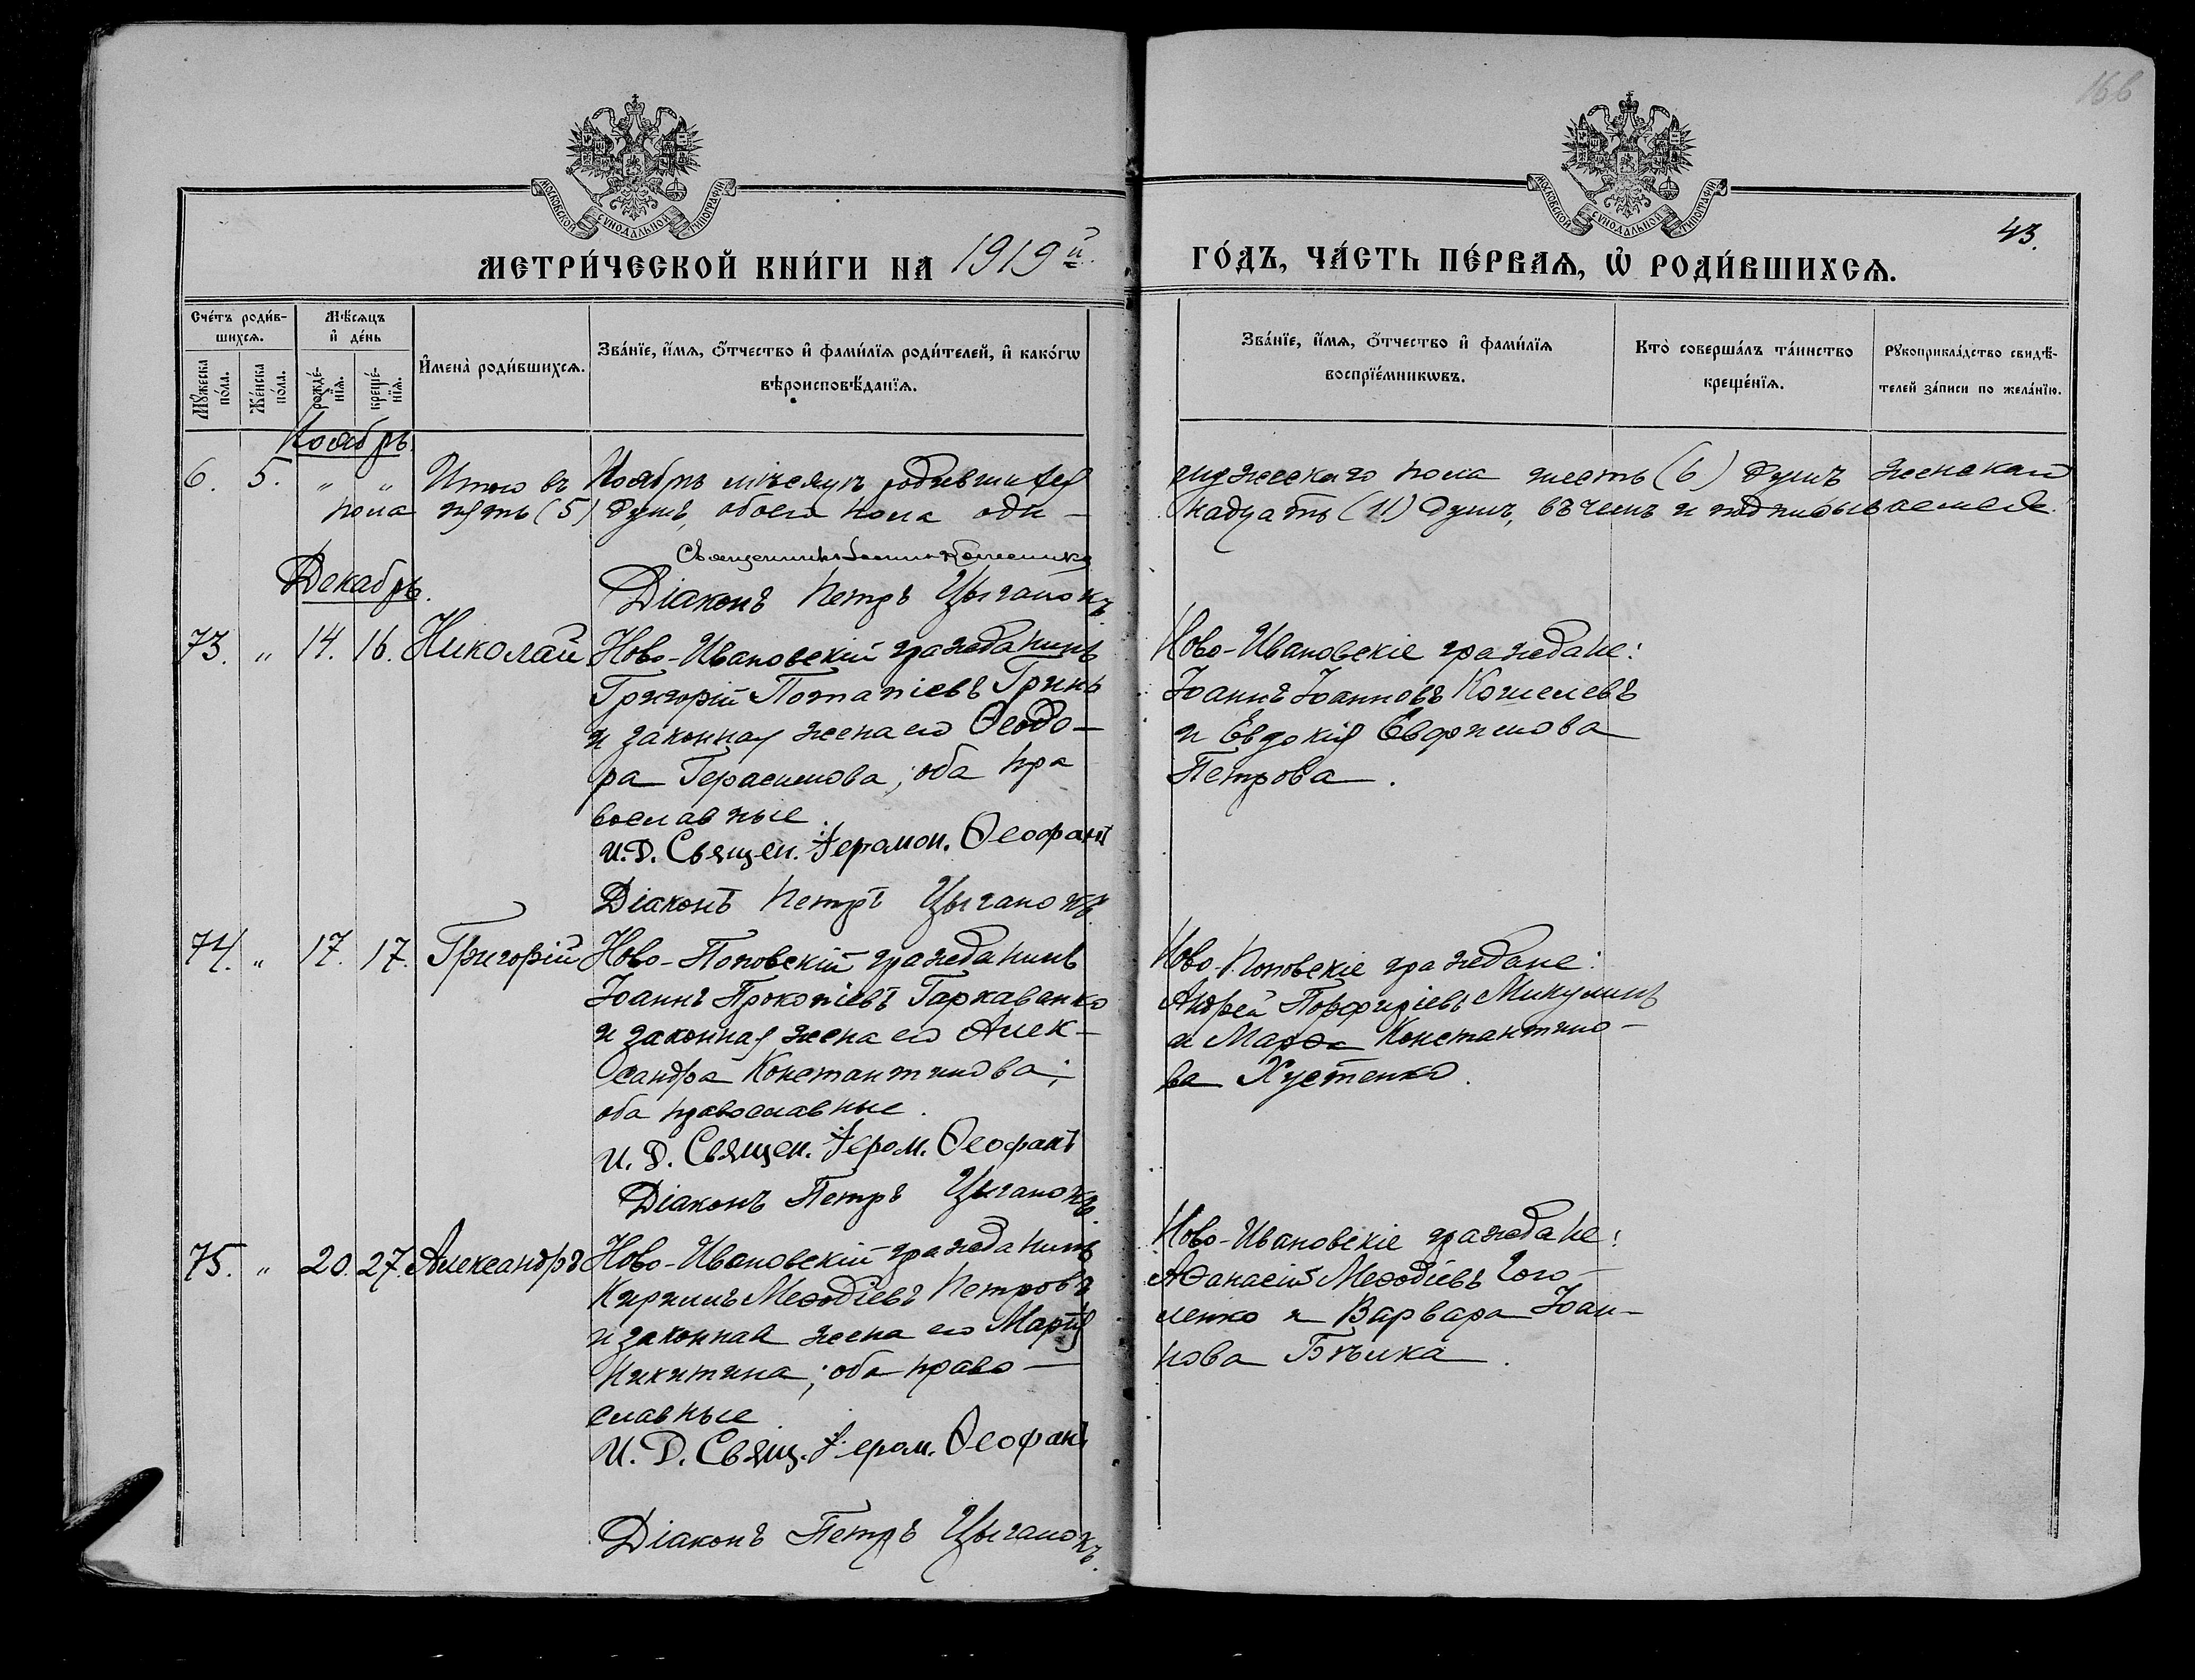 166
МОСКОВСКОЙ СѴНОДАЛЬНОЙ ТИПОГРАФІИ
МОСКОВСКОЙ СѴНОДАЛЬНОЙ ТИПОГРАФІИ
43.
МЕТРИ́ЧЕСКОЙ КНИ́ГИ НА 1919й.
ГО́ДЪ, ЧА́СТЬ ПЕ́РВАѦ, Ѡ҆ РОДИ́ВШИХСѦ.
Сче́тъ роди́в-
шихсѧ.
Мꙋжеска по́ла.
Же́нска по́ла.
Мѣ́сѧцъ
и҆ де́нь
рожде́-
нїѧ.
креще́-
нїѧ.
И҆мена̀ роди́вшихсѧ.
Зва́нїе, и҆́мѧ, ѻ҆́тчество и҆ фами́лїѧ роди́телей, и҆ како́гѡ
вѣроисповѣ́данїѧ.
Зва́нїе, и҆́мѧ, ѻ҆́тчество и҆ фами́лїѧ
воспрїе́мникѡвъ.
Кто̀ соверша́лъ та́инство
креще́нїѧ.
Рꙋкоприкла́дство свидѣ́-
телей за́писи по жела́нїю.
Ноябрь.
6. 5. „ „ Итого въ Ноябрѣ мѣсяцѣ родившихся
пола пять (5) душъ, обоего пола оди-
мужескаго пола шесть (6) душъ женскаго
надцать (11) душъ, въ чемъ и подписываемся.
Священникъ Іоаннъ
Діаконъ Петръ Цыганокъ.
Декабрь.
73. „ 14. 16. Николай
Ново-Ивановскій гражданинъ
Григорій Потапіевъ Гринь
и законная жена его Ѳеодо-
ра Герасимова; оба пра
вославные.
И.Д. Священ. Іеромон. Ѳеофанъ
Діаконъ Петръ Цыганокъ.
Ново-Ивановскіе граждане:
Іоаннъ Іоанновъ Кошелевъ
и Евдокія Евфимова
Петрова.
74. „ 17. 17. Григорій
Ново-Поповскій гражданинъ
Іоаннъ Прокопіевъ Гаркавенко
и законная жена его Алек-
сандра Константинова;
оба православные.
И.Д. Священ. Іером. Ѳеофанъ
Діаконъ Петръ Цыганокъ.
Ново-Поповскіе граждане:
Андрей Порфиріевъ Микулинъ
и Марѳа Константино-
ва Хустенко.
75. „ 20. 27. Александръ
Ново-Ивановскій гражданинъ
Кириллъ Меѳодіевъ Петровъ
и законная жена его Марія
Никитина; оба право-
славные.
И.Д. Свящ. Іером. Ѳеофанъ
Діаконъ Петръ Цыганокъ.
Ново-Ивановскіе граждане:
Аѳанасій Меѳодіевъ Гого-
ленко и Варвара Іоан-
нова Бѣлка.